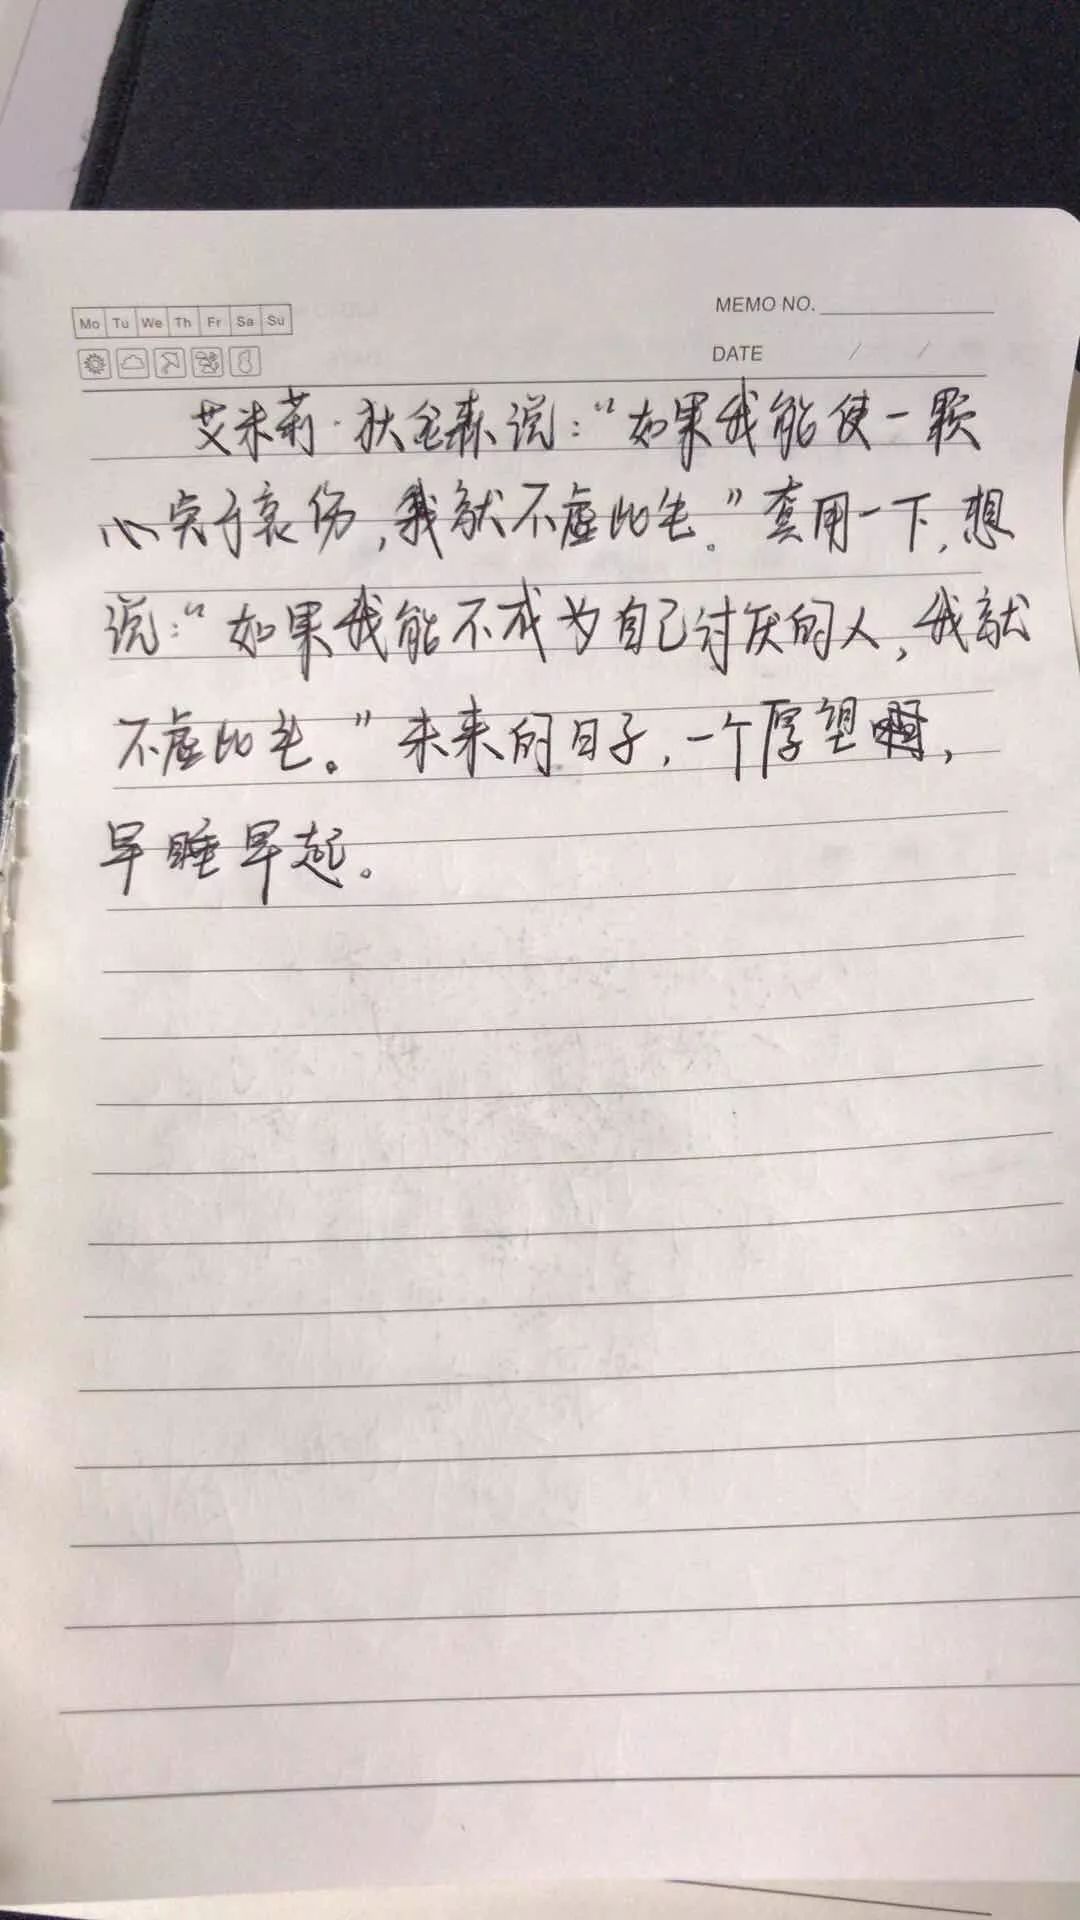 Mo Tu We Th Fr Sa Su
MEMO NO.
DATE / /
艾米莉·狄金森说:“如果我能使一颗
心免于哀伤,我就不虚此生。”套用一下,想
说:“如果我能不成为自己讨厌的人,我就
不虚此生。”未来的日子,一个厚望啊,
早睡早起。